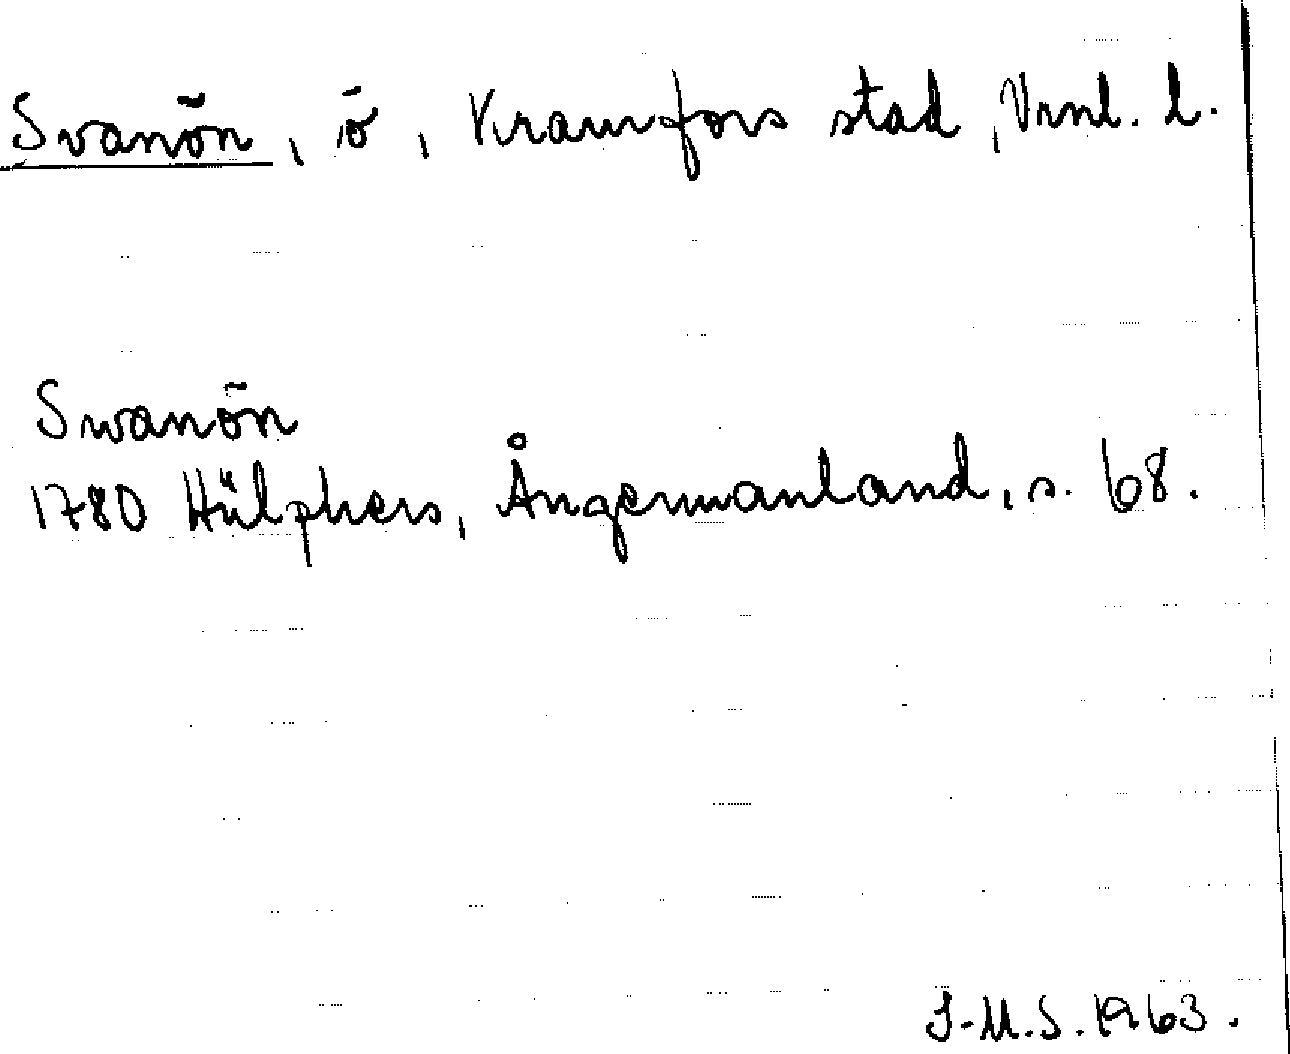 Svanön, ö, Kramfors stad, Vrnl. l.
Swanön
1780 Hülphers, Ångermanland, s. 68.
I-M.S. 1963.